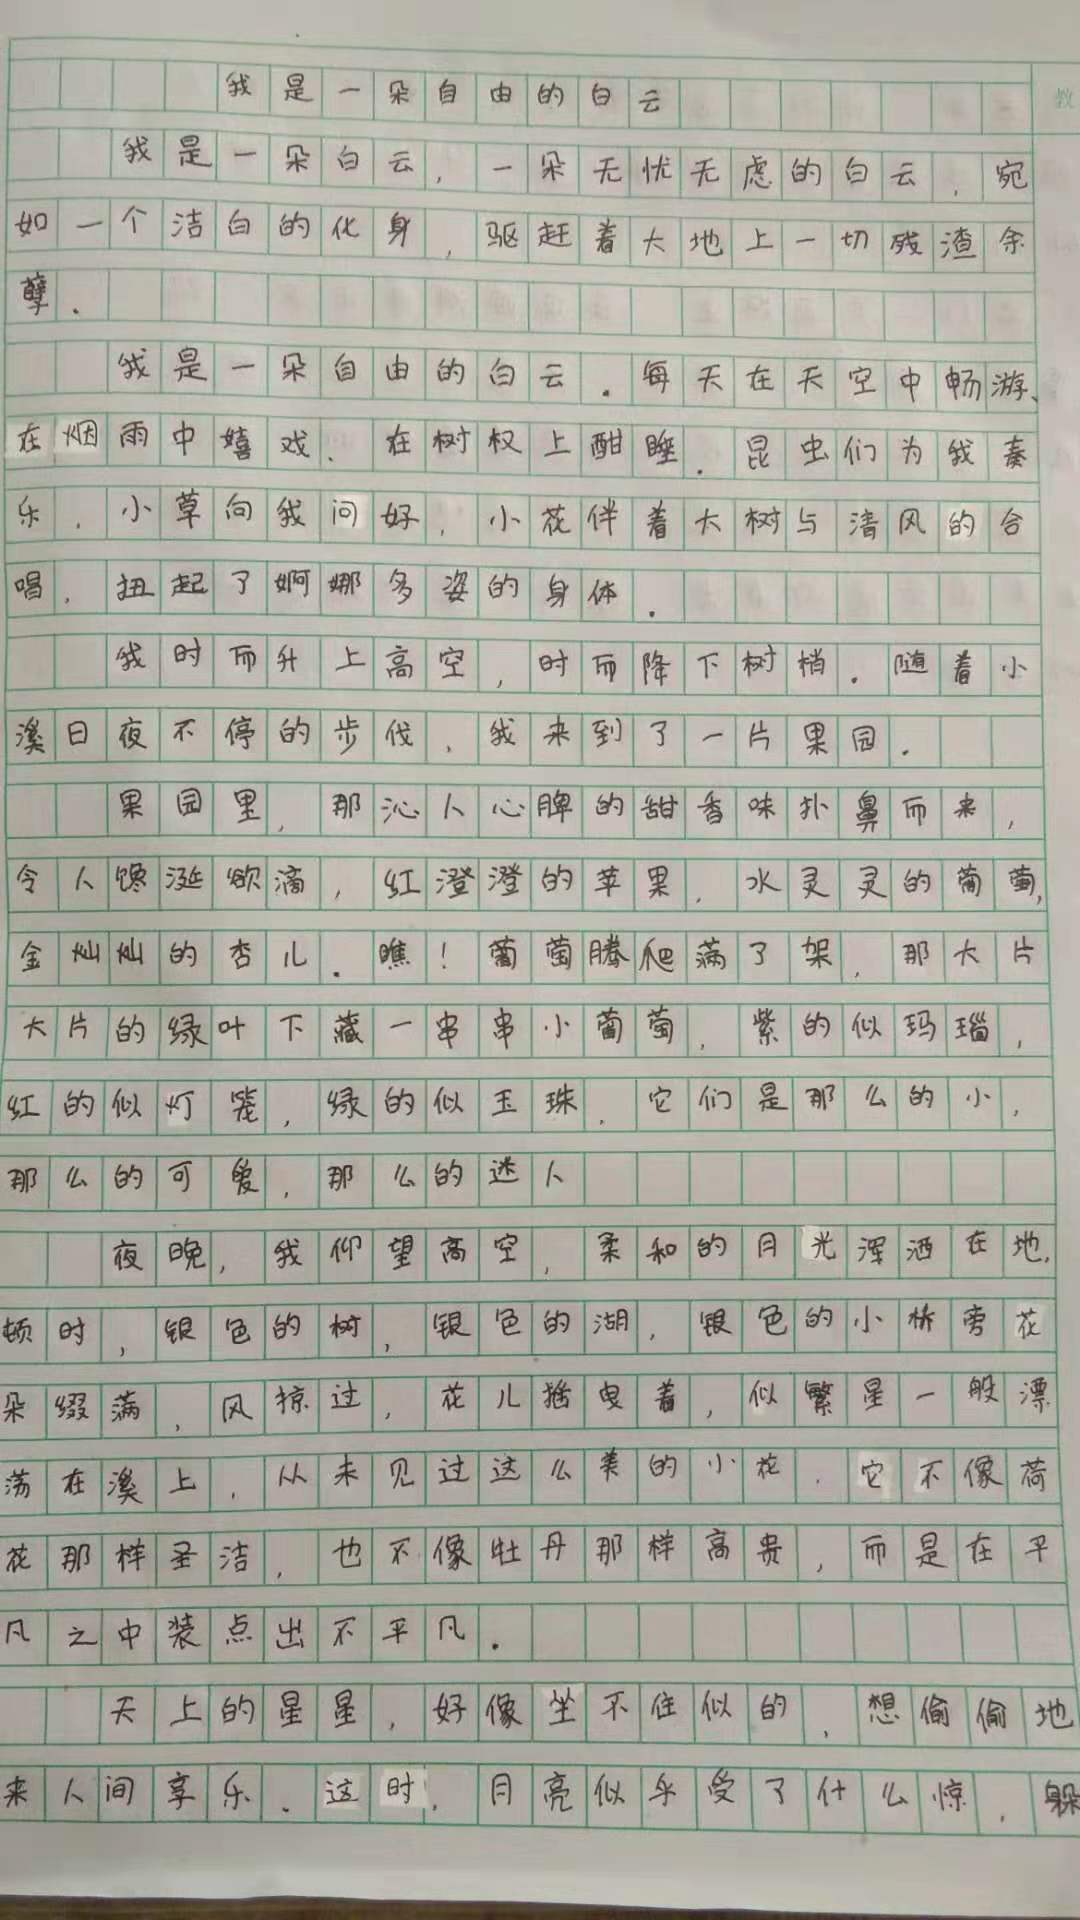 我是一朵自由的白云
教
我是一朵白云，一朵无忧无虑的白云，宛
如一个洁白的化身，驱赶着大地上一切残渣余
孽．
我是一朵自由的白云．每天在天空中畅游、
在烟雨中嬉戏、在树杈上酣睡．昆虫们为我奏
乐，小草向我问好，小花伴着大树与清风的合
唱，扭起了婀娜多姿的身体．
我时而升上高空，时而降下树梢．随着小
溪日夜不停的步伐，我来到了一片果园．
果园里，那沁人心脾的甜香味扑鼻而来，
令人馋涎欲滴，红澄澄的苹果，水灵灵的葡萄，
金灿灿的杏儿．瞧！葡萄腾爬满了架，那大片
大片的绿叶下藏一串串小葡萄，紫的似玛瑙，
红的似灯笼，绿的似玉珠．它们是那么的小，
那么的可爱，那么的迷人
夜晚，我仰望高空，柔和的月光浑洒在地，
顿时，银色的树，银色的湖，银色的小桥旁花
朵缀满，风掠过，花儿摇曳着，似繁星一般漂
荡在溪上，从未见过这么美的小花．它不像荷
花那样圣洁，也不像牡丹那样高贵，而是在平
凡之中装点出不平凡．
天上的星星，好像坐不住似的，想偷偷地
来人间享乐．这时，月亮似乎受了什么惊，躲